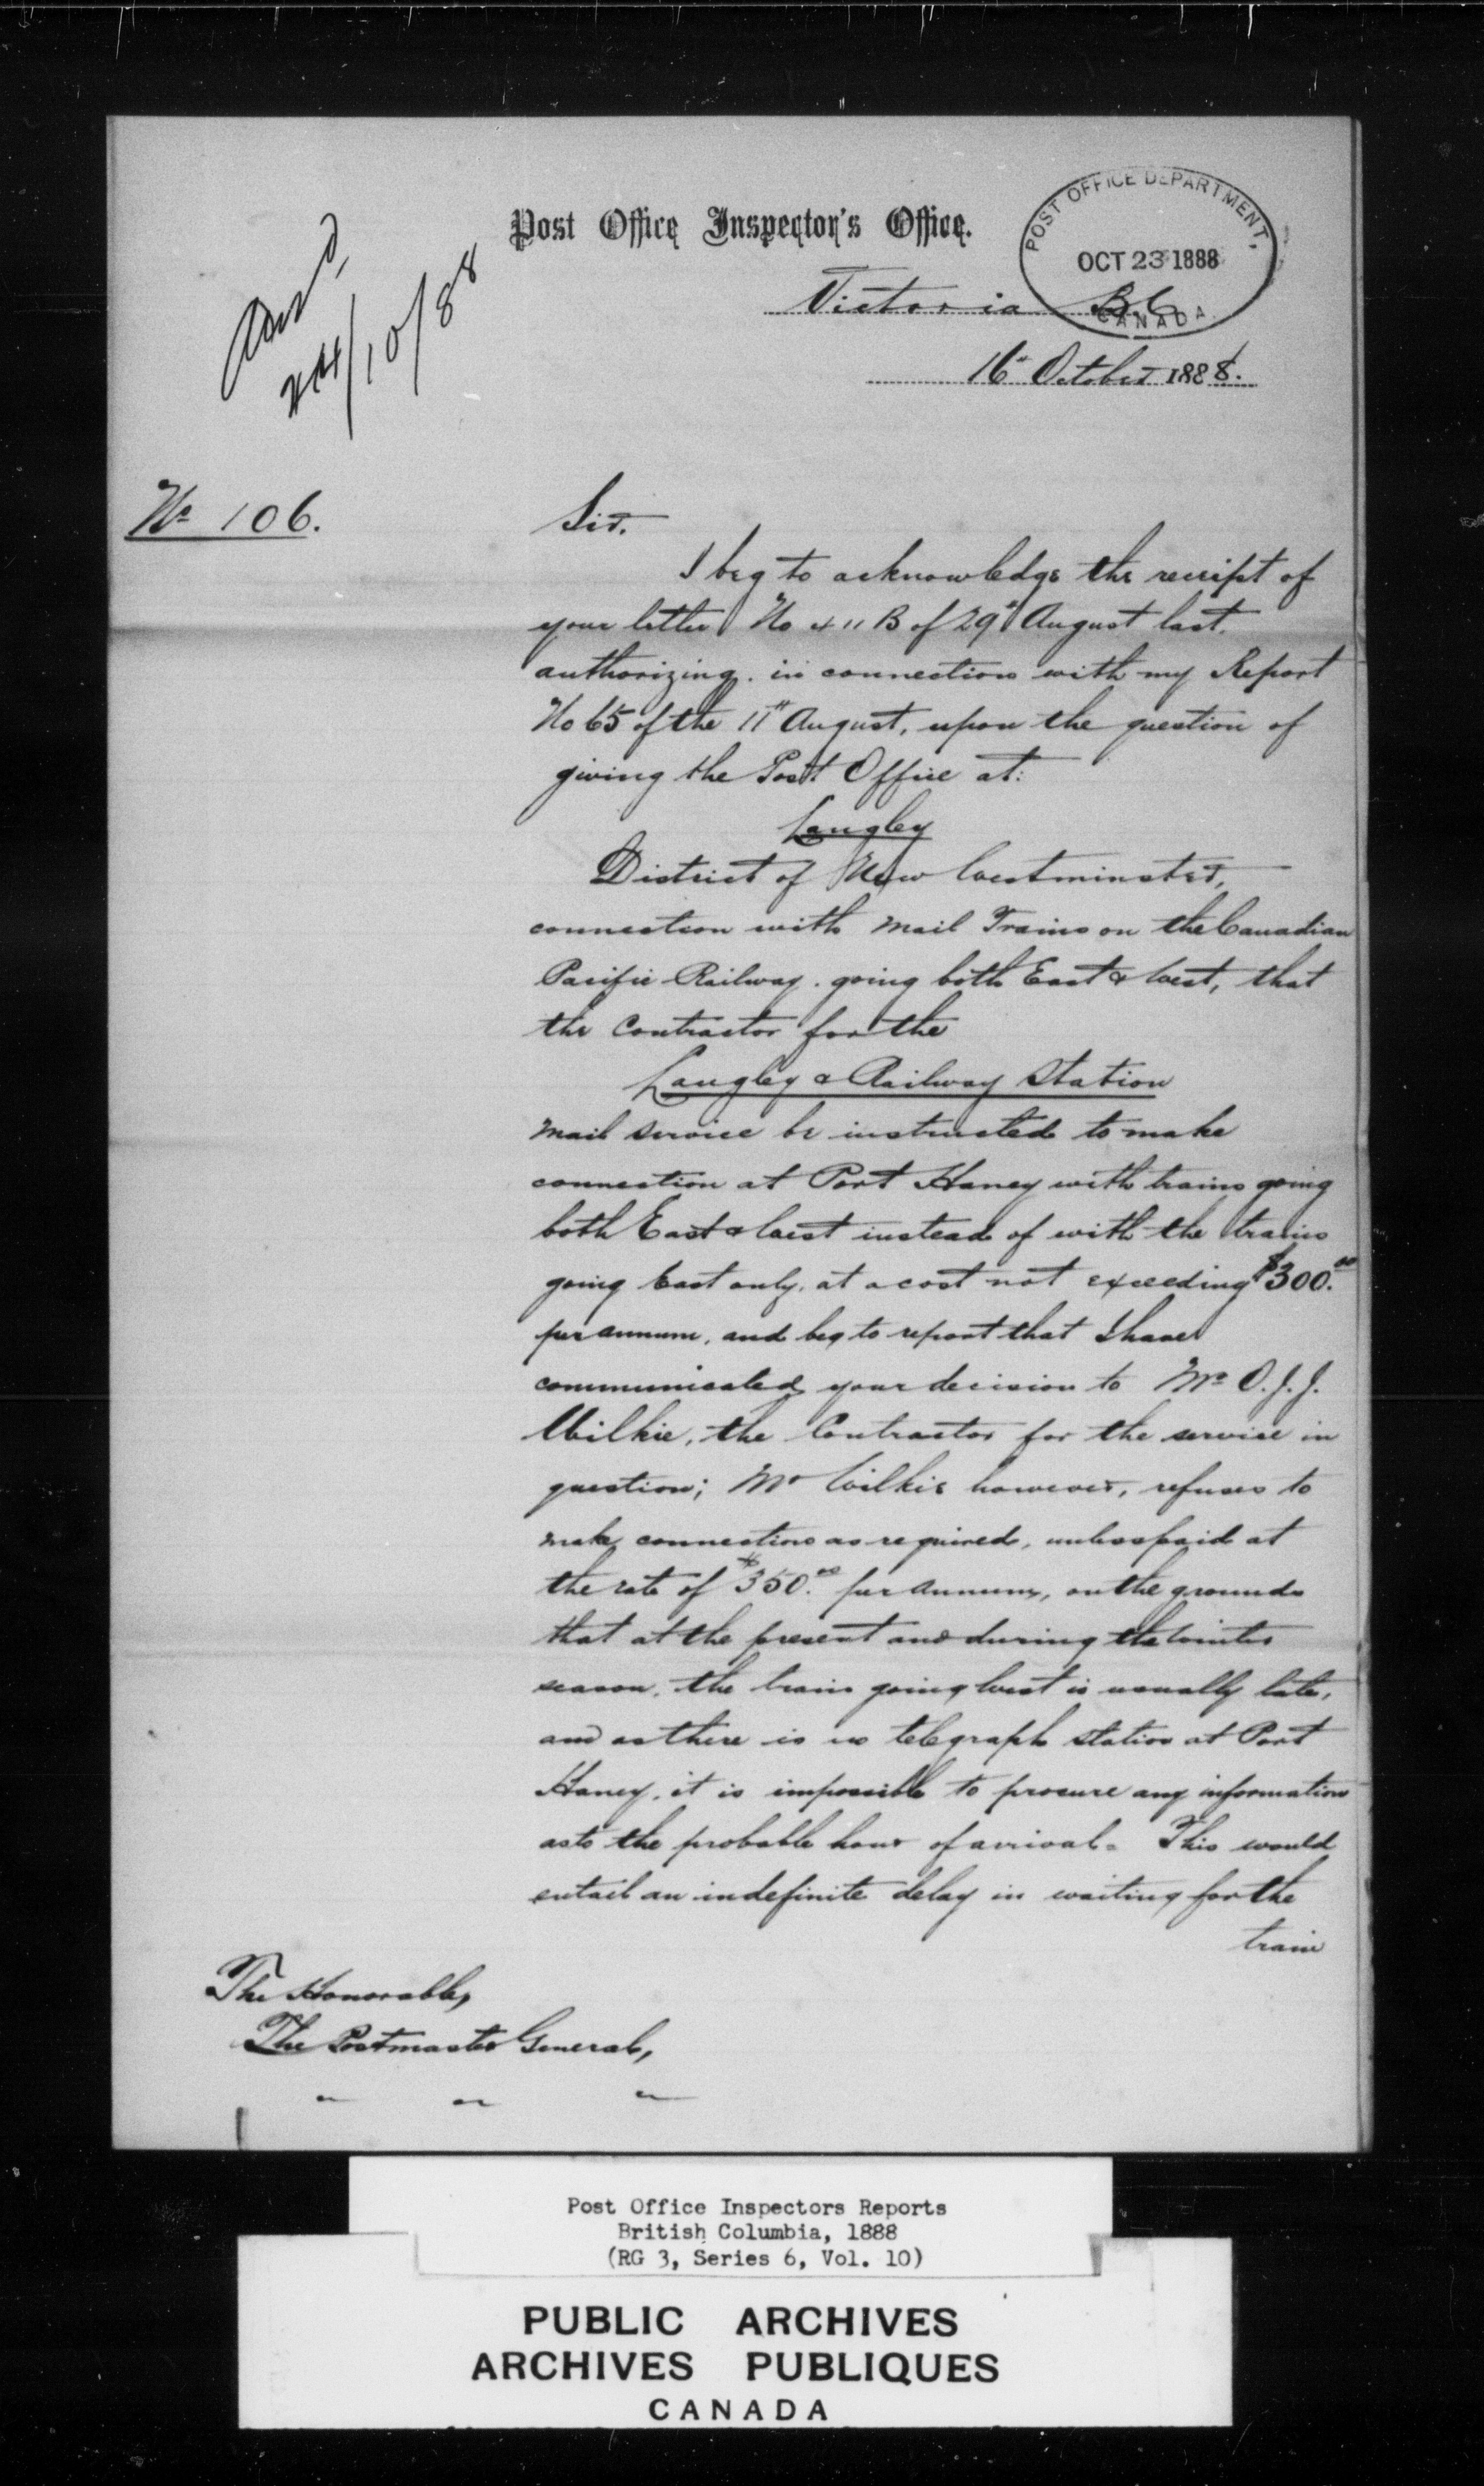 Post Office Inspector's Office.
POST OFFICE DEPARTMENT,
OCT 23 1888
CANADA
Victoria B.C.
16th October 1888.
Ansd.
24/10/88
No 106.
Sir.
I beg to acknowledge the receipt of
your letter No 411 B of 29th August last.
authorizing. in connection with my Report
No 65 of the 11th August, upon the question of
giving the Post Office at:
Langley
District of New Westminster,
connection with Mail Trains on the Canadian
Pacific Railway. going both East & West, that
the Contractor for the
Langley & Railway Station
Mail Service be instructed to make
connection at Port Haney with trains going
both East & West instead of with the trains
going East only, at a cost not exceeding $300.00
per annum, and beg to report that I have
communicated your decision to Mr O.J.J.
Wilkie, the Contractor for the service in
question; Mr Wilkie however, refuses to
make connections as required, unless paid at
the rate of $350.00 per annum, on the grounds
that at the present and during the winter
season, the train going West is usually late,
and as there is no telegraph station at Port
Haney, it is impossible to procure any information
as to the probable hour of arrival. This would
entail an indefinite delay in waiting for the
train
The Honorable,
The Postmaster General,
Post Office Inspectors Reports
British Columbia, 1888
(RG 3, Series 6, Vol. 10)
PUBLIC ARCHIVES
ARCHIVES PUBLIQUES
CANADA